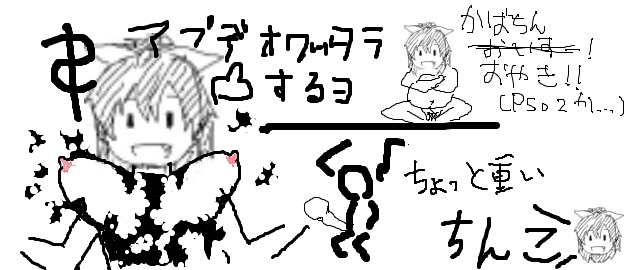 アプデオワッタラ
するヨ
かばちん
おやすー!
おやき!!
(P502か...)
ちょっと重い
ちんこ